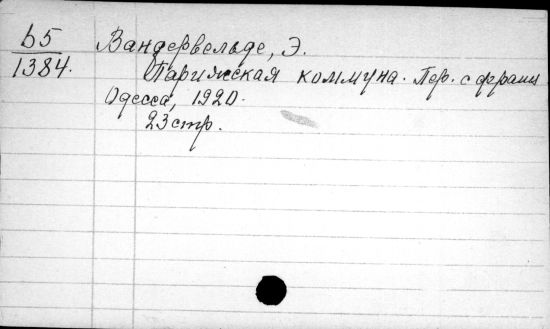 Б5
1384.
Вандервельде, Э.
Парижская коммуна. Пер. с франц
Одесса, 1920.
23 стр.